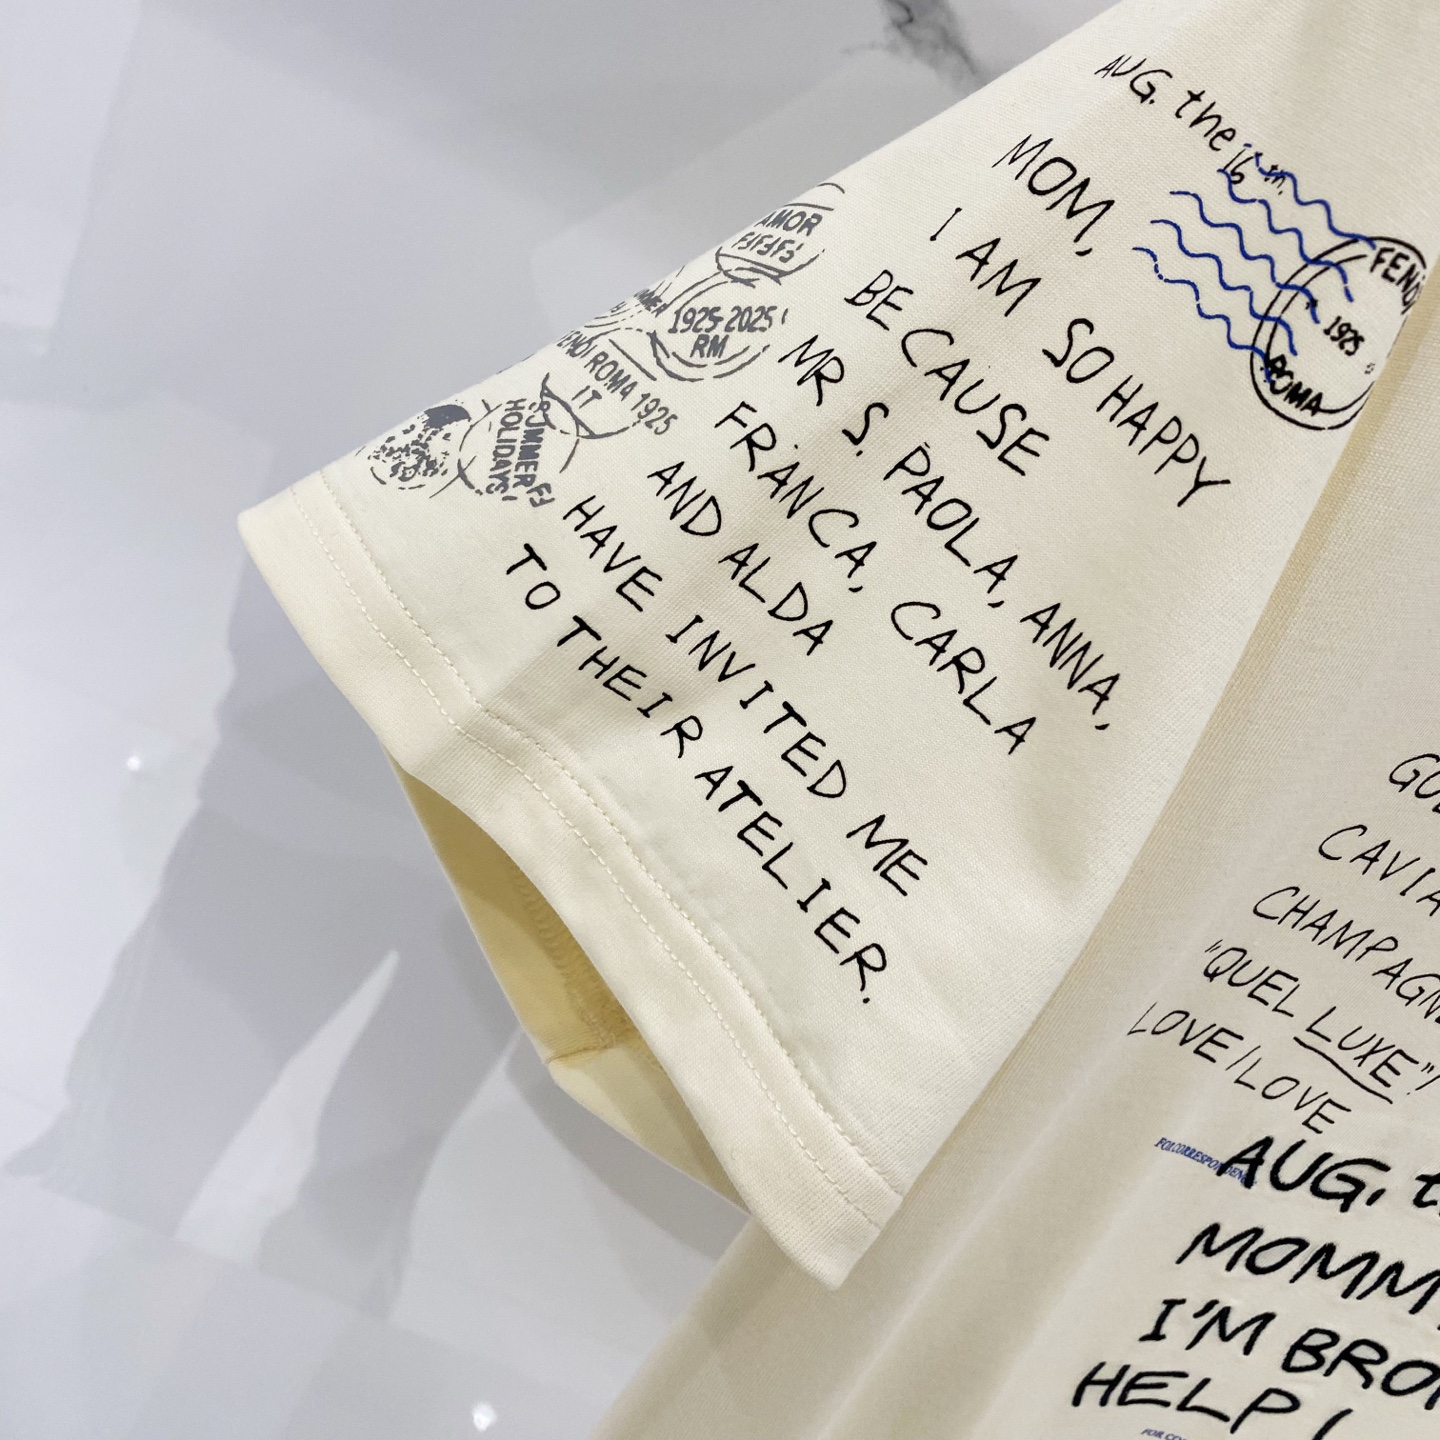 AUG. the 16 th.
MOM,
I AM SO HAPPY
BECAUSE
MR S. PAOLA, ANNA,
FRANCA, CARLA
AND ALDA
HAVE INVITED ME
TO THEIR ATELIER.
FENDI
1925
ROMA
AMOR
FJFJFJ
1925-2025
RM
FENDI ROMA 1925
IT
SUMMER FJ
HOLIDAYS
CAVIA
CHAMPAGN
"QUEL LUXE"!
LOVE/LOVE
AUG. t
MOMM
I'M BRO
HELP!